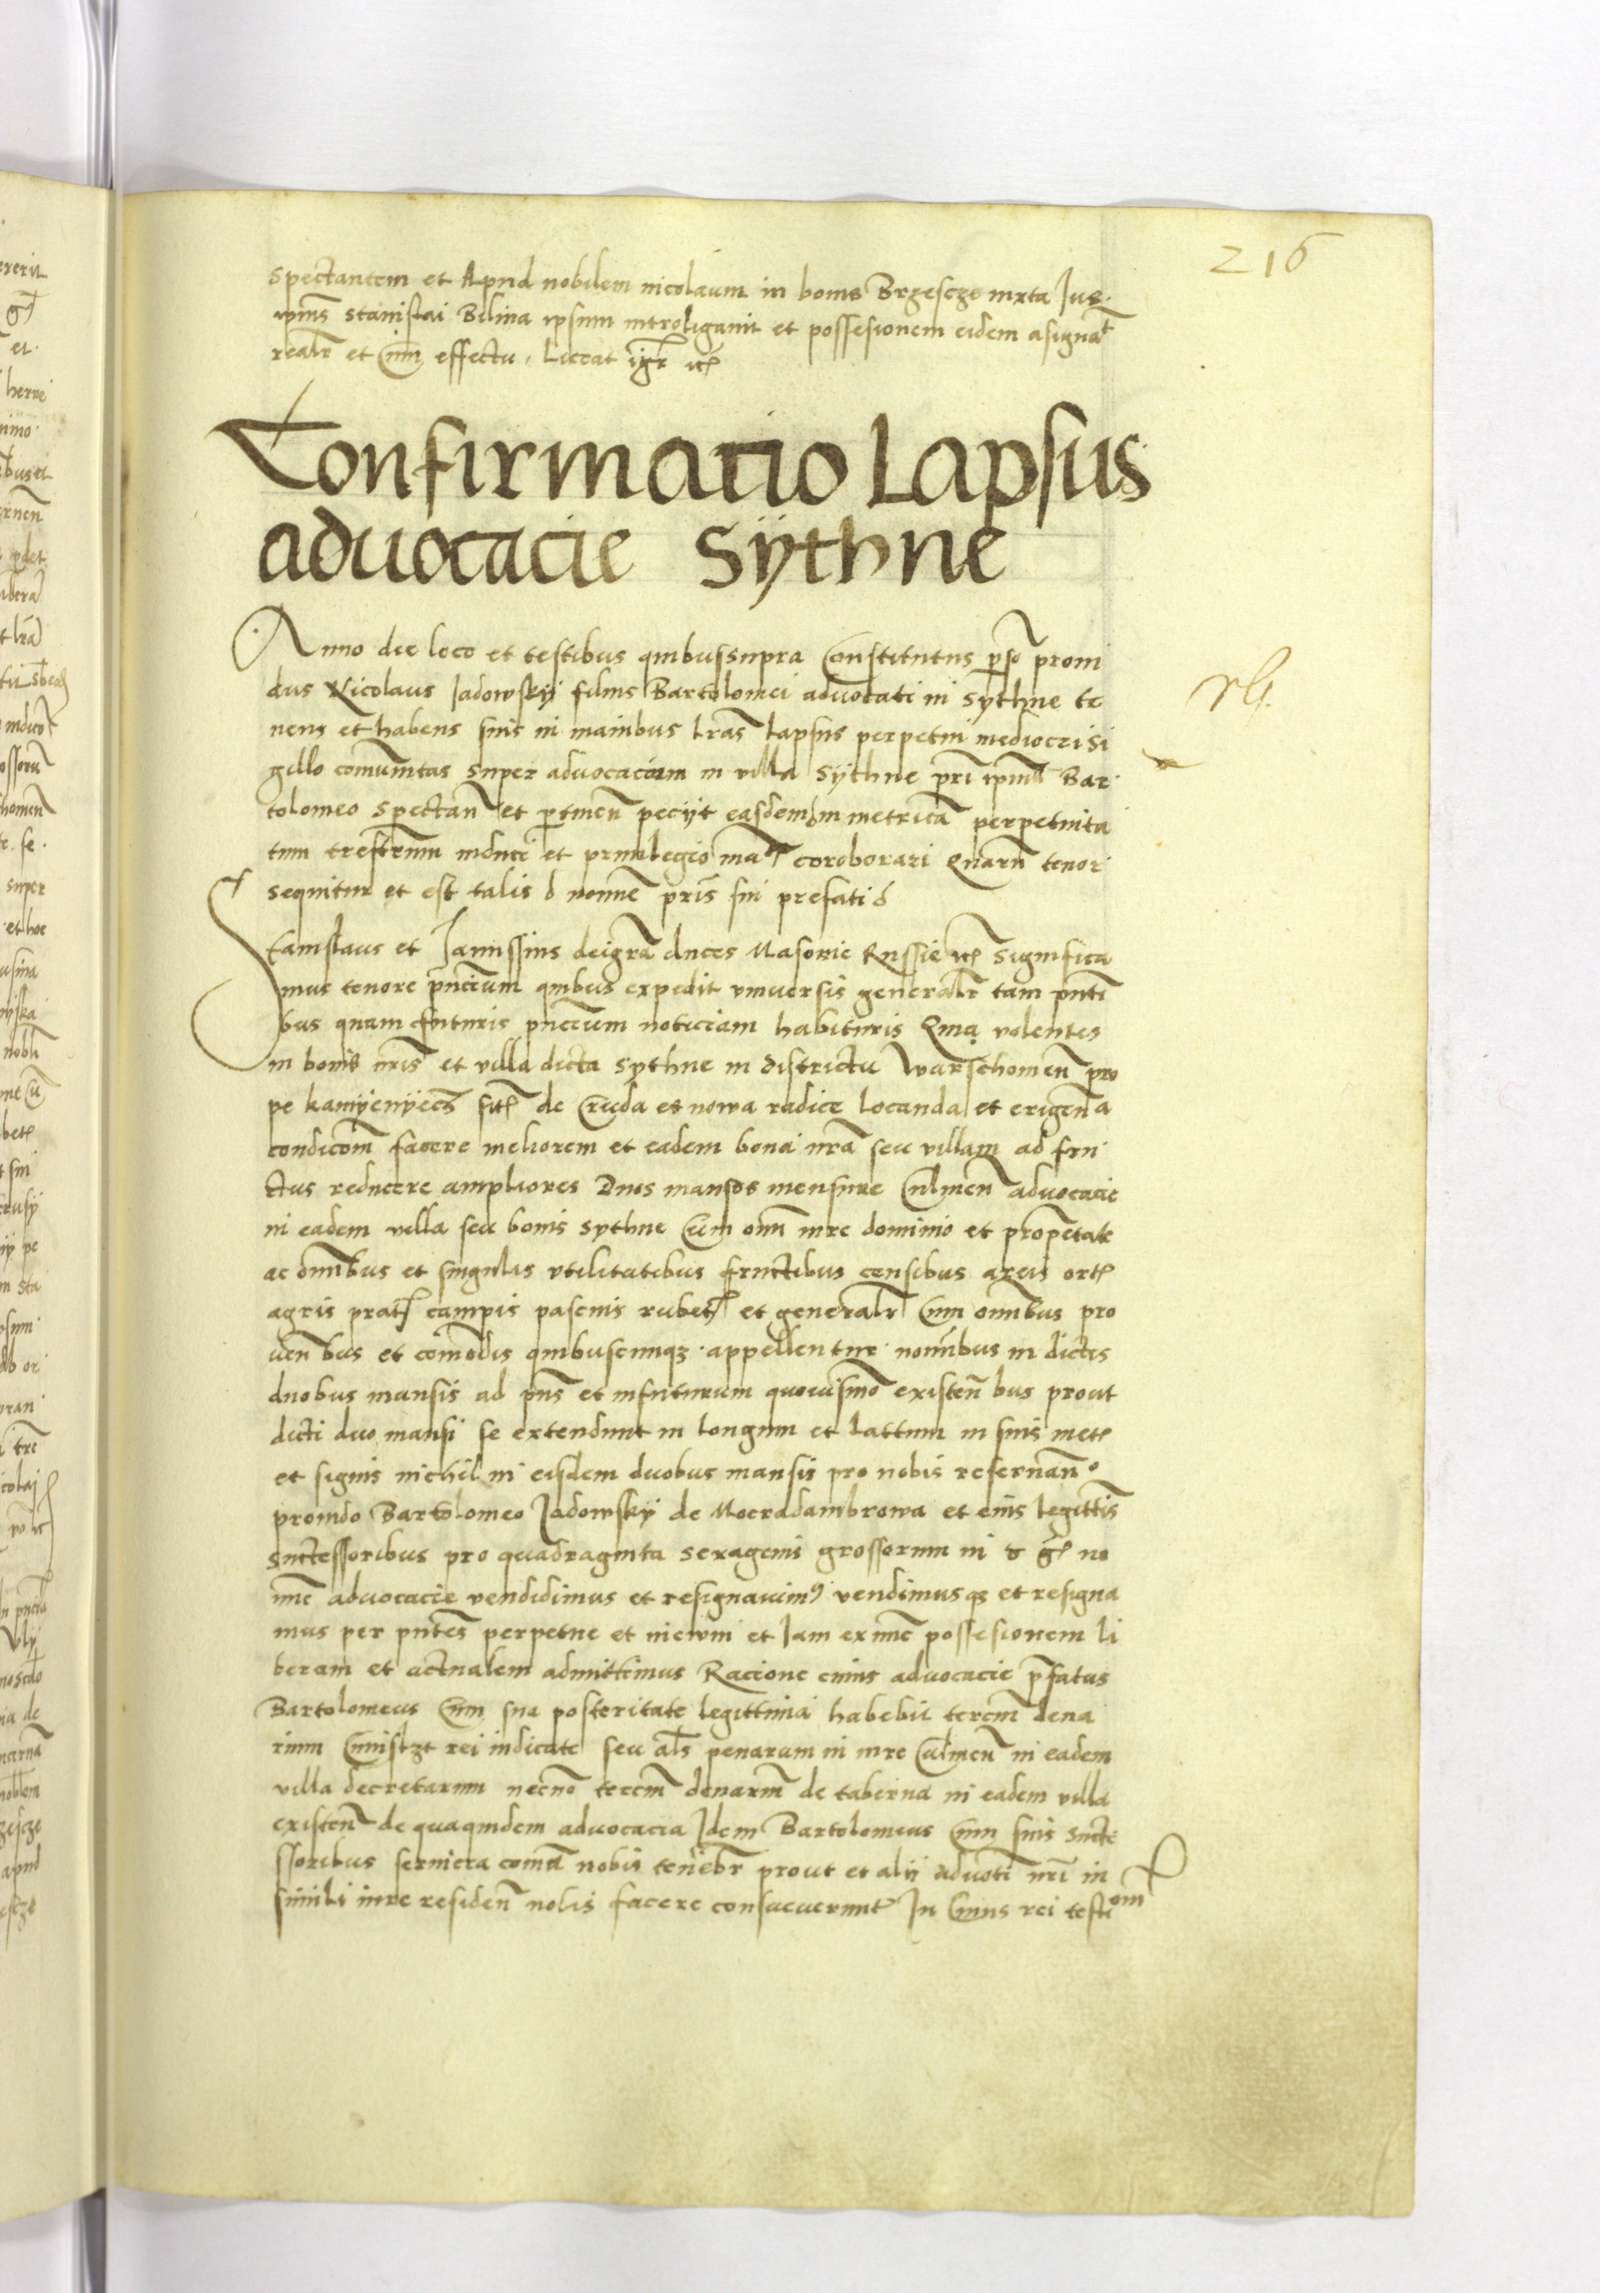 216
spectantem et Apud nobilem nicolaum in bonis Brzescze iuxta Jus
ipius stanislai Bilina ipsum introligauit et possesionem eidem asignat
realr et cum effectu, Liceat igr etc
Confirmatio Lapsus
aduocacie Sÿthne
Anno die loco et testibus quibussupra Constitutus pso proui
dus Nicolaus Jadowskÿ filius Bartolomei aduocati in sythne te
nens et habens suis in mainbus lras lapsus perpetui mediocri si
gillo comunitas super aduocaciam in villa sÿthne pri ipius Bar
tolomeo spectan et ptinen peciÿt easdem in metrica perpetuita
tum trestrium induci et priuilegio coroborari Quaru tenor
sequitur et est talis d nomie pris sui prefati d
Stanislaus et Janussius deigra duces Masouie Russie etc significa
mus tenore pncium quibus expedit vniuersis generalr tam pnti
bus quam futuris pncium noticiam habituris Quia volentes
in bonis nris et villa dicta sythne in districtu Warschouien pro
pe kamyenyecz sit de cruda et nowa radice locanda et erigenda
condicom facere meliorem et eadem bona nra seu villam ad fru
ctus reducere ampliores Duos mansos mensure Culmen aduocacie
in eadem villa seu bonis sythne cum omi iure dominio et propetate
ac omibus et singulis vtilitatibus fructibus censibus areis ort
agris prat campis pascuis rubet et generalr cum omibus pro
uen bus et comodis quibuscunqz appellentur nomibus in dictis
duobus mansis ad pns et infuturum quouismo existen bus prout
dicti duo mansi se extendunt in longum et lattum in suis met
et signis nichil in eisdem duobus mansis pro nobis reseruan
prouido Bartolomeo Jadowskÿ de Mocradambrowa et eius legittis
suctessoribus pro quadraginta sexagenis grossorum in no
mie aduocacie vendidimus et resignauim9 vendimusqz et resigna
mus per pntes perpetue et in ewm et Jam ex nuc possesionem li
beram et actualem admittimus Racione cuius aduocacie pfatus
Bartolomeus cum sua posteritate legittima habebit tercm dena
rium cuiuslzt rei iudicate seu als penarum in iure culmen in eadem
villa decretarum necno tercm denarm de taberna in eadem villa
existen de quaquidem aduocacia Idem Bartolomeus cum suis sucte
ssoribus seruicia nobis tenebr prout et alÿ aduoti nri in
simili iure residen nobis facere consueuerunt In cuius rei testiom